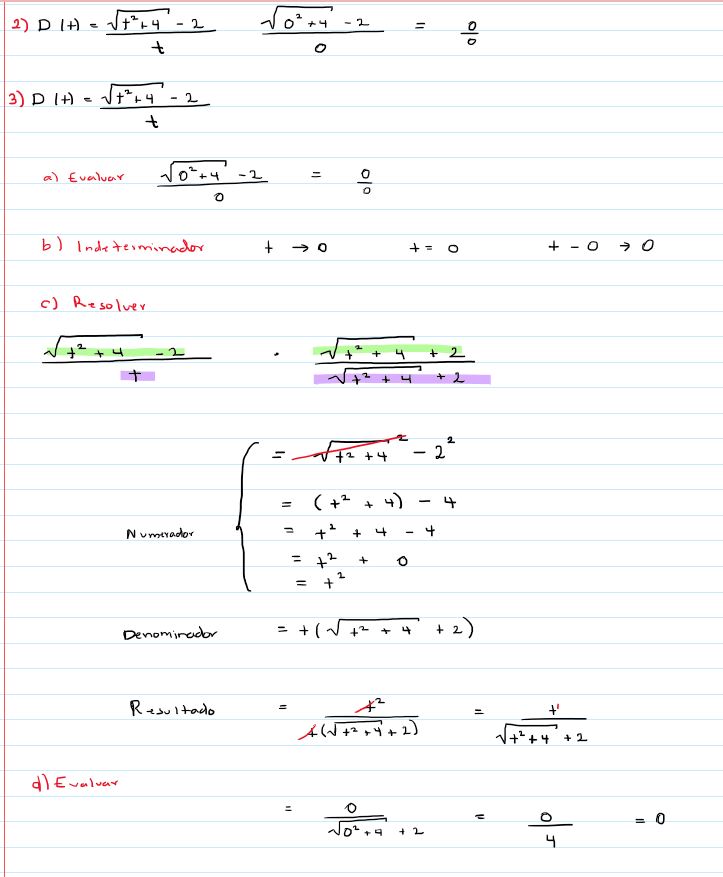 2) D (t) = √(t²+4) - 2 / t    √(0²+4) - 2 / 0 = 0/0
3) D (t) = √(t²+4) - 2 / t
a) Evaluar √(0²+4) - 2 / 0 = 0/0
b) Indeterminador t → 0 t = 0 t - 0 → 0
c) Resolver
√(t² + 4) - 2 / t · √(t² + 4) + 2 / √(t² + 4) + 2
= √(t² + 4)² - 2²
= (t² + 4) - 4
Numerador = t² + 4 - 4
= t² + 0
= t²
Denominador = t(√(t² + 4) + 2)
Resultado = t² / t(√(t² + 4) + 2) = t¹ / √(t² + 4) + 2
d) Evaluar
= 0 / √(0² + 4) + 2 = 0/4 = 0